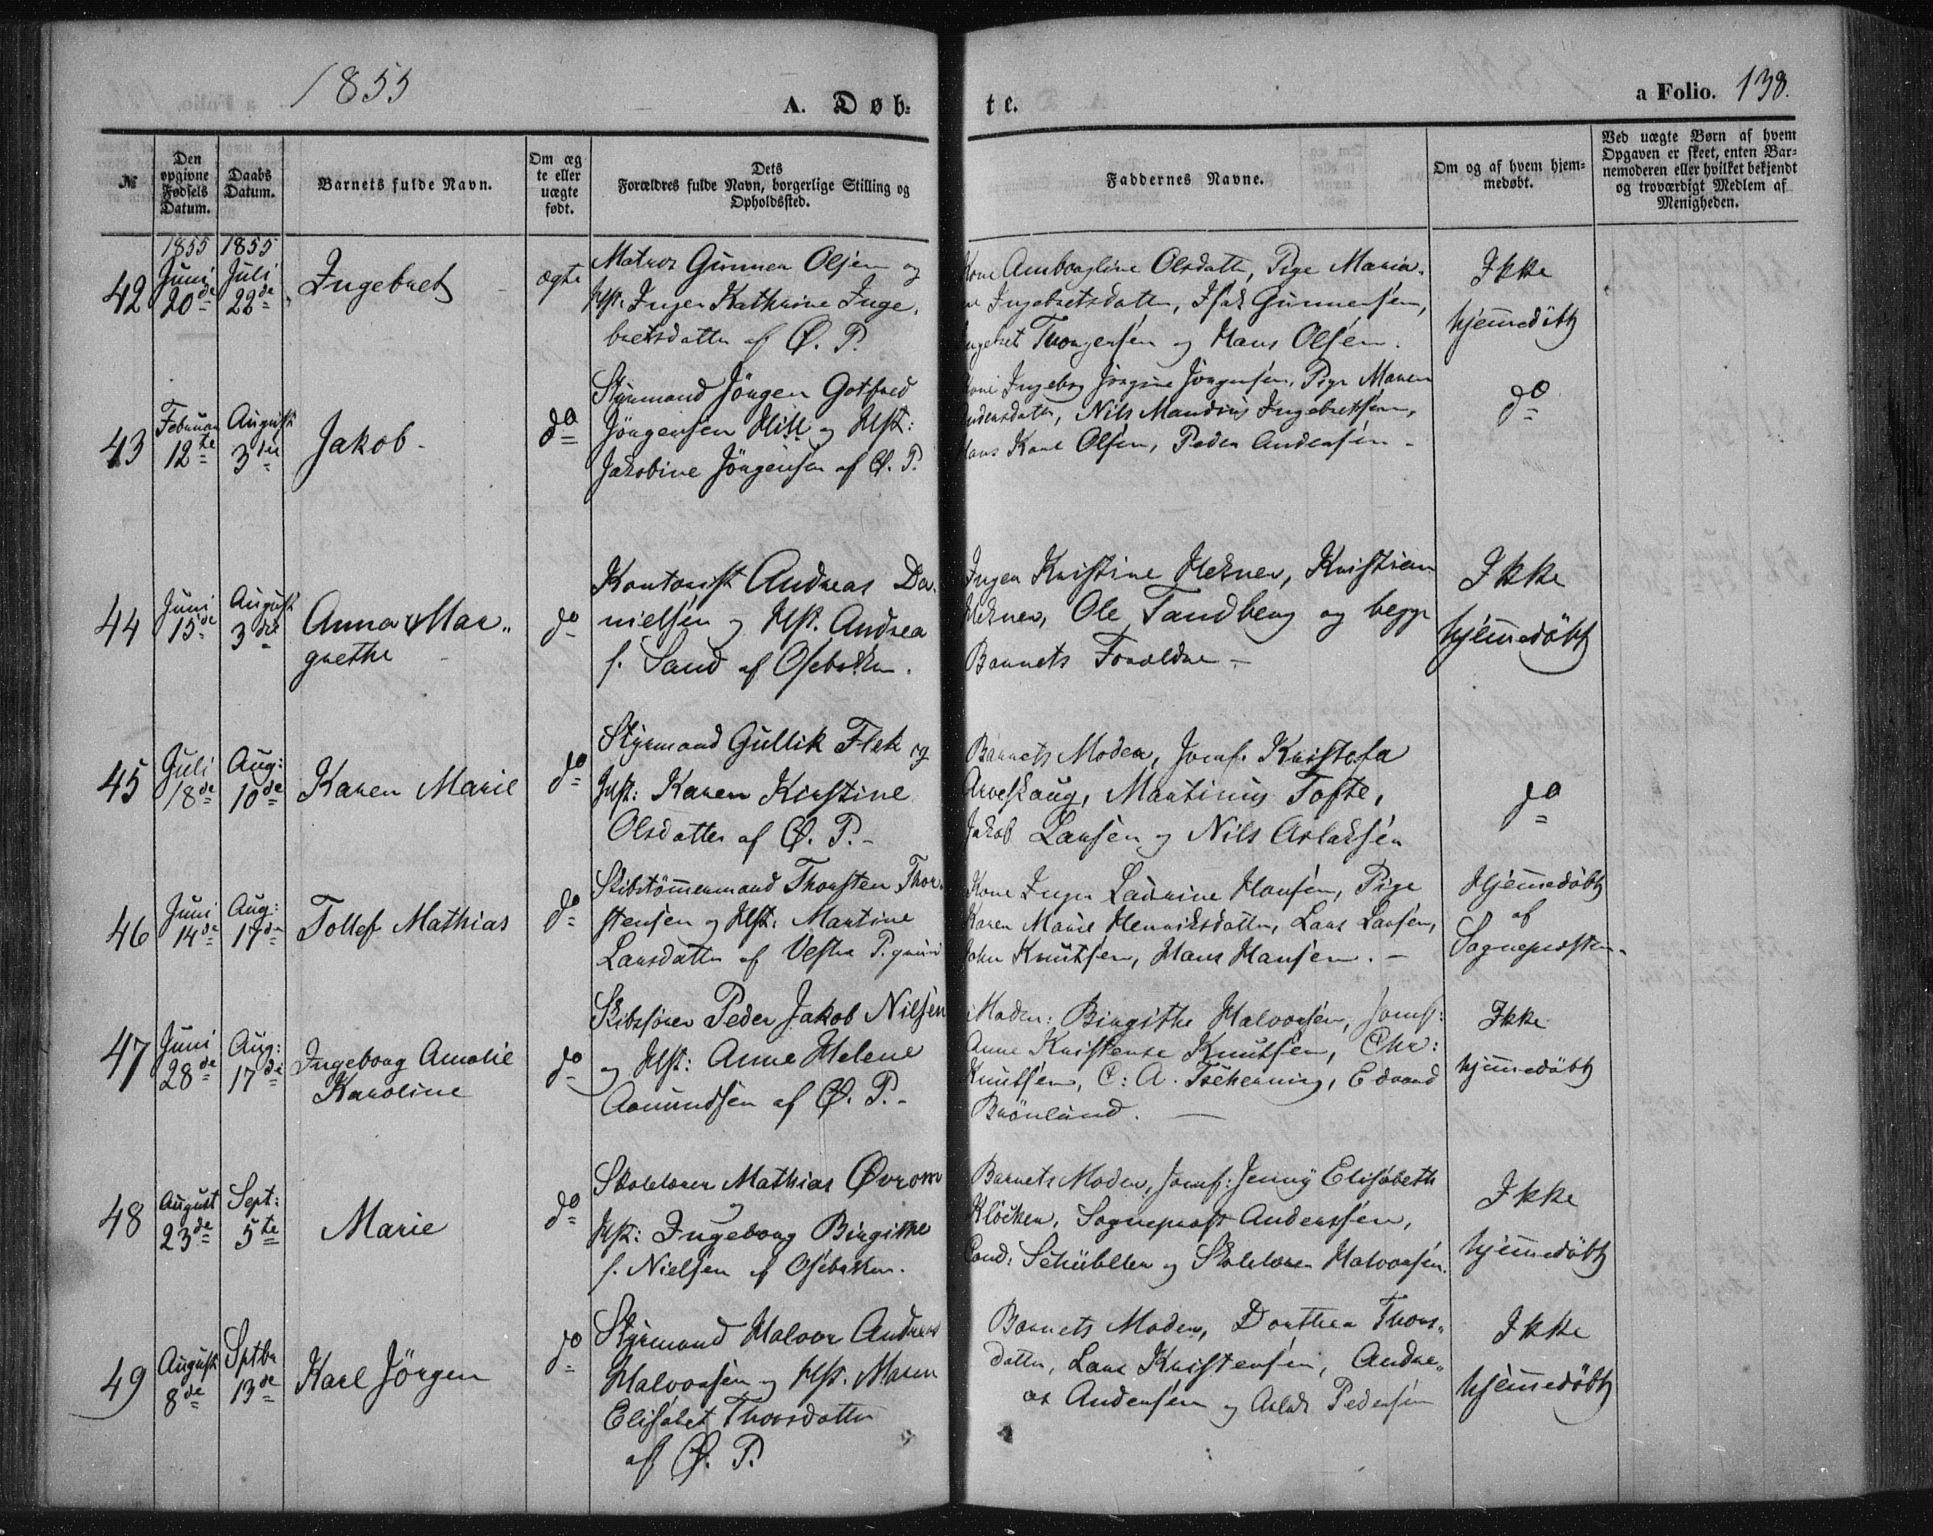 1855
A. Døb-
te.
a Folio. 138.
№
Den opgivne Fødsels Datum.
Daabs Datum.
Barnets fulde Navn.
Om ægte eller uægte født.
Dets
Forældres fulde Navn, borgerlige Stilling og
Opholdssted.
Faddernes Navne.
Om og af hvem hjem-
medøbt.
Ved uægte Børn af hvem
Opgaven er skeet, enten Bar-
nemoderen eller hvilket bekjendt
og troværdigt Medlem af
Menigheden.
1855 1855
42 Juni 20de Juli 22de Ingebret ægte
Matros Gunner Olsen og
Hst. Inger Kathrine Inge
bretsdatter af Ø. P.
Kone Olsdatter, Pige Maria
Ingebretsdatter, Isak Gunnersen,
Ingebret Thorgersen og Hans Olsen.
Ikke
hjemmedöbt
43 Februar 12te August 3die Jakob do
Styrmand Jörgen Gotfred
Jörgensen Hill og Hst:
Jakobine Jörgensen af Ø. P.
Kone Ingebor Jörgine Jörgensen, Pige Maren
Andersdatter, Nils Mandius Ingebretsen,
Hans Karl Olsen, Peder Andersen
do
44 Juni 15de August 3die Anna Mar
grethe do
Kontorist Andreas Da
nielsen og Hst. Andrea
f. Sand af Osebakken.
Inger Kristine Hekner, Kristian
Hekner, Ole Tandberg og begge
Barnets Forældre
Ikke
hjemmedöbt
45 Juli 18de Aug: 10de Karen Marie do
Styrmand Gullik Flek og
Hst: Karen Kirstine
Olsdatter af Ø. P.
Barnets Moder, Jomf. Kristofa
Arveskaug, Martinius Tofte,
Jakob Larsen og Nils Aslaksen
do
46 Juni 14de Aug: 17de Tollef Mathias do
Skibstömmermand Thorsten Thor
stensen og Hst: Martine
Larsdatter af Vestre P.grund
Kone Inger Laurine Hansen, Pige
Karen Marie Henriksdatter, Lars Larsen,
John Knutsen, Hans Hansen.
Hjemmedöbt
af
Sognepresten
47 Juni 28de Aug: 17de Ingeborg Amalie
Karoline do
Skibsfører Peder Jakob Nilsen
og Hst: Anne Helene
Aamundsen af Ø. P.
Moder: Birgithe Halvorsen, Jomf:
Anne Kristense Knutsen, Chr:
Knutsen, C: A. Tscherning, Edvard
Brönlund.
Ikke
hjemmedöbt
48 August 23de Sept: 5te Marie do
Skolelærer Mathias Øvrom
Hst: Ingeborg Birgithe
f. Nielsen af Osebakken.
Barnets Moder, Jomf: Jenny Elisabeth
Klöcker, Sogneprest Anderssen,
Cand: Schübeler og Skolelærer Halvorsen.
Ikke
hjemmedöbt
49 August 8de Septbr 13de Karl Jörgen do
Styrmand Halvor Andreas
Halvorsen og Hst. Maren
Elisabet Thorsdatter
af Ø. P.
Barnets Moder, Dorthea Thors
datter, Lars Kristensen, Andre
as Andersen og Aslak Pedersen
Ikke
hjemmedöbt